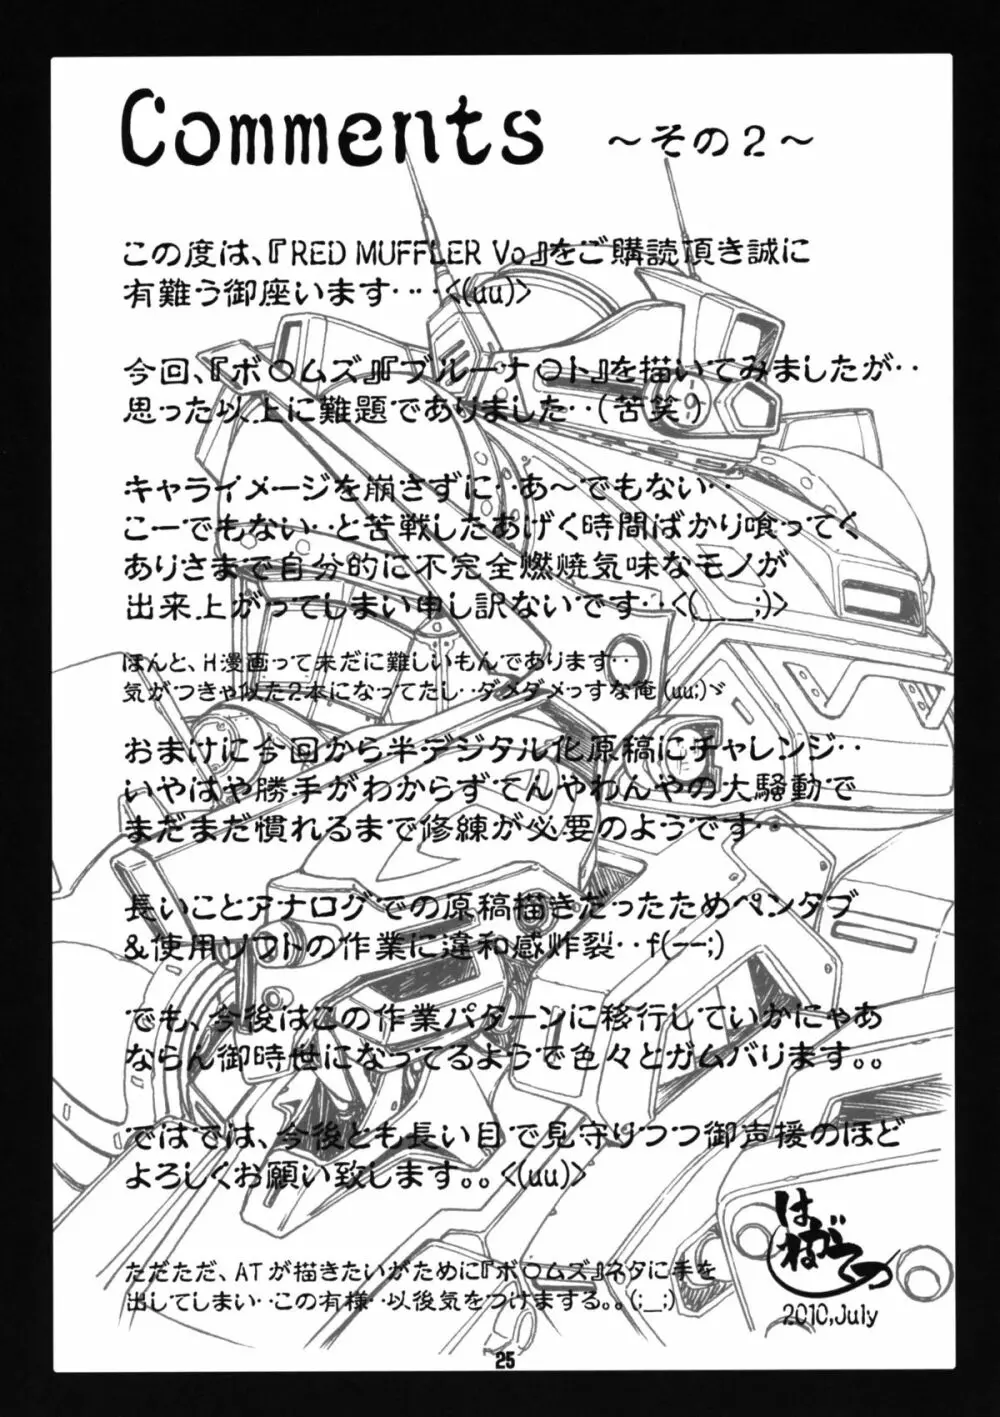 Comments ～その２～
この度は、『RED MUFFLER Vo』をご購読頂き誠に
有難う御座います‥‥<(uu)>
今回、『ボ〇ムズ』『ブルーナ〇ト』を描いてみましたが‥
思った以上に難題でありました‥(苦笑)
キャライメージを崩さずに‥あ～でもない‥
こーでもない‥と苦戦したあげく時間ばかり喰ってく
ありさまで自分的に不完全燃焼気味なモノが
出来上がってしまい申し訳ないです‥<(___;)>
ほんと、H漫画って未だに難しいもんであります‥
気がつきゃ似た2本になってたし‥ダメダメっすな俺(uu;)ゞ
おまけに今回から半デジタル化原稿にチャレンジ‥
いやはや勝手がわからずてんやわんやの大騒動で
まだまだ慣れるまで修練が必要のようです‥
長いことアナログでの原稿描きだったためペンタブ
&使用ソフトの作業に違和感炸裂‥f(--;)
でも、今後はこの作業パターンに移行していかにゃあ
ならん御時世になってるようで色々とガムバります。。
ではでは、今後とも長い目で見守りつつ御声援のほど
よろしくお願い致します。。<(uu)>
ただただ、ATが描きたいがために『ボ〇ムズ』ネタに手を
出してしまい‥この有様‥以後気をつけまする。。(;_;)
2010,July
25